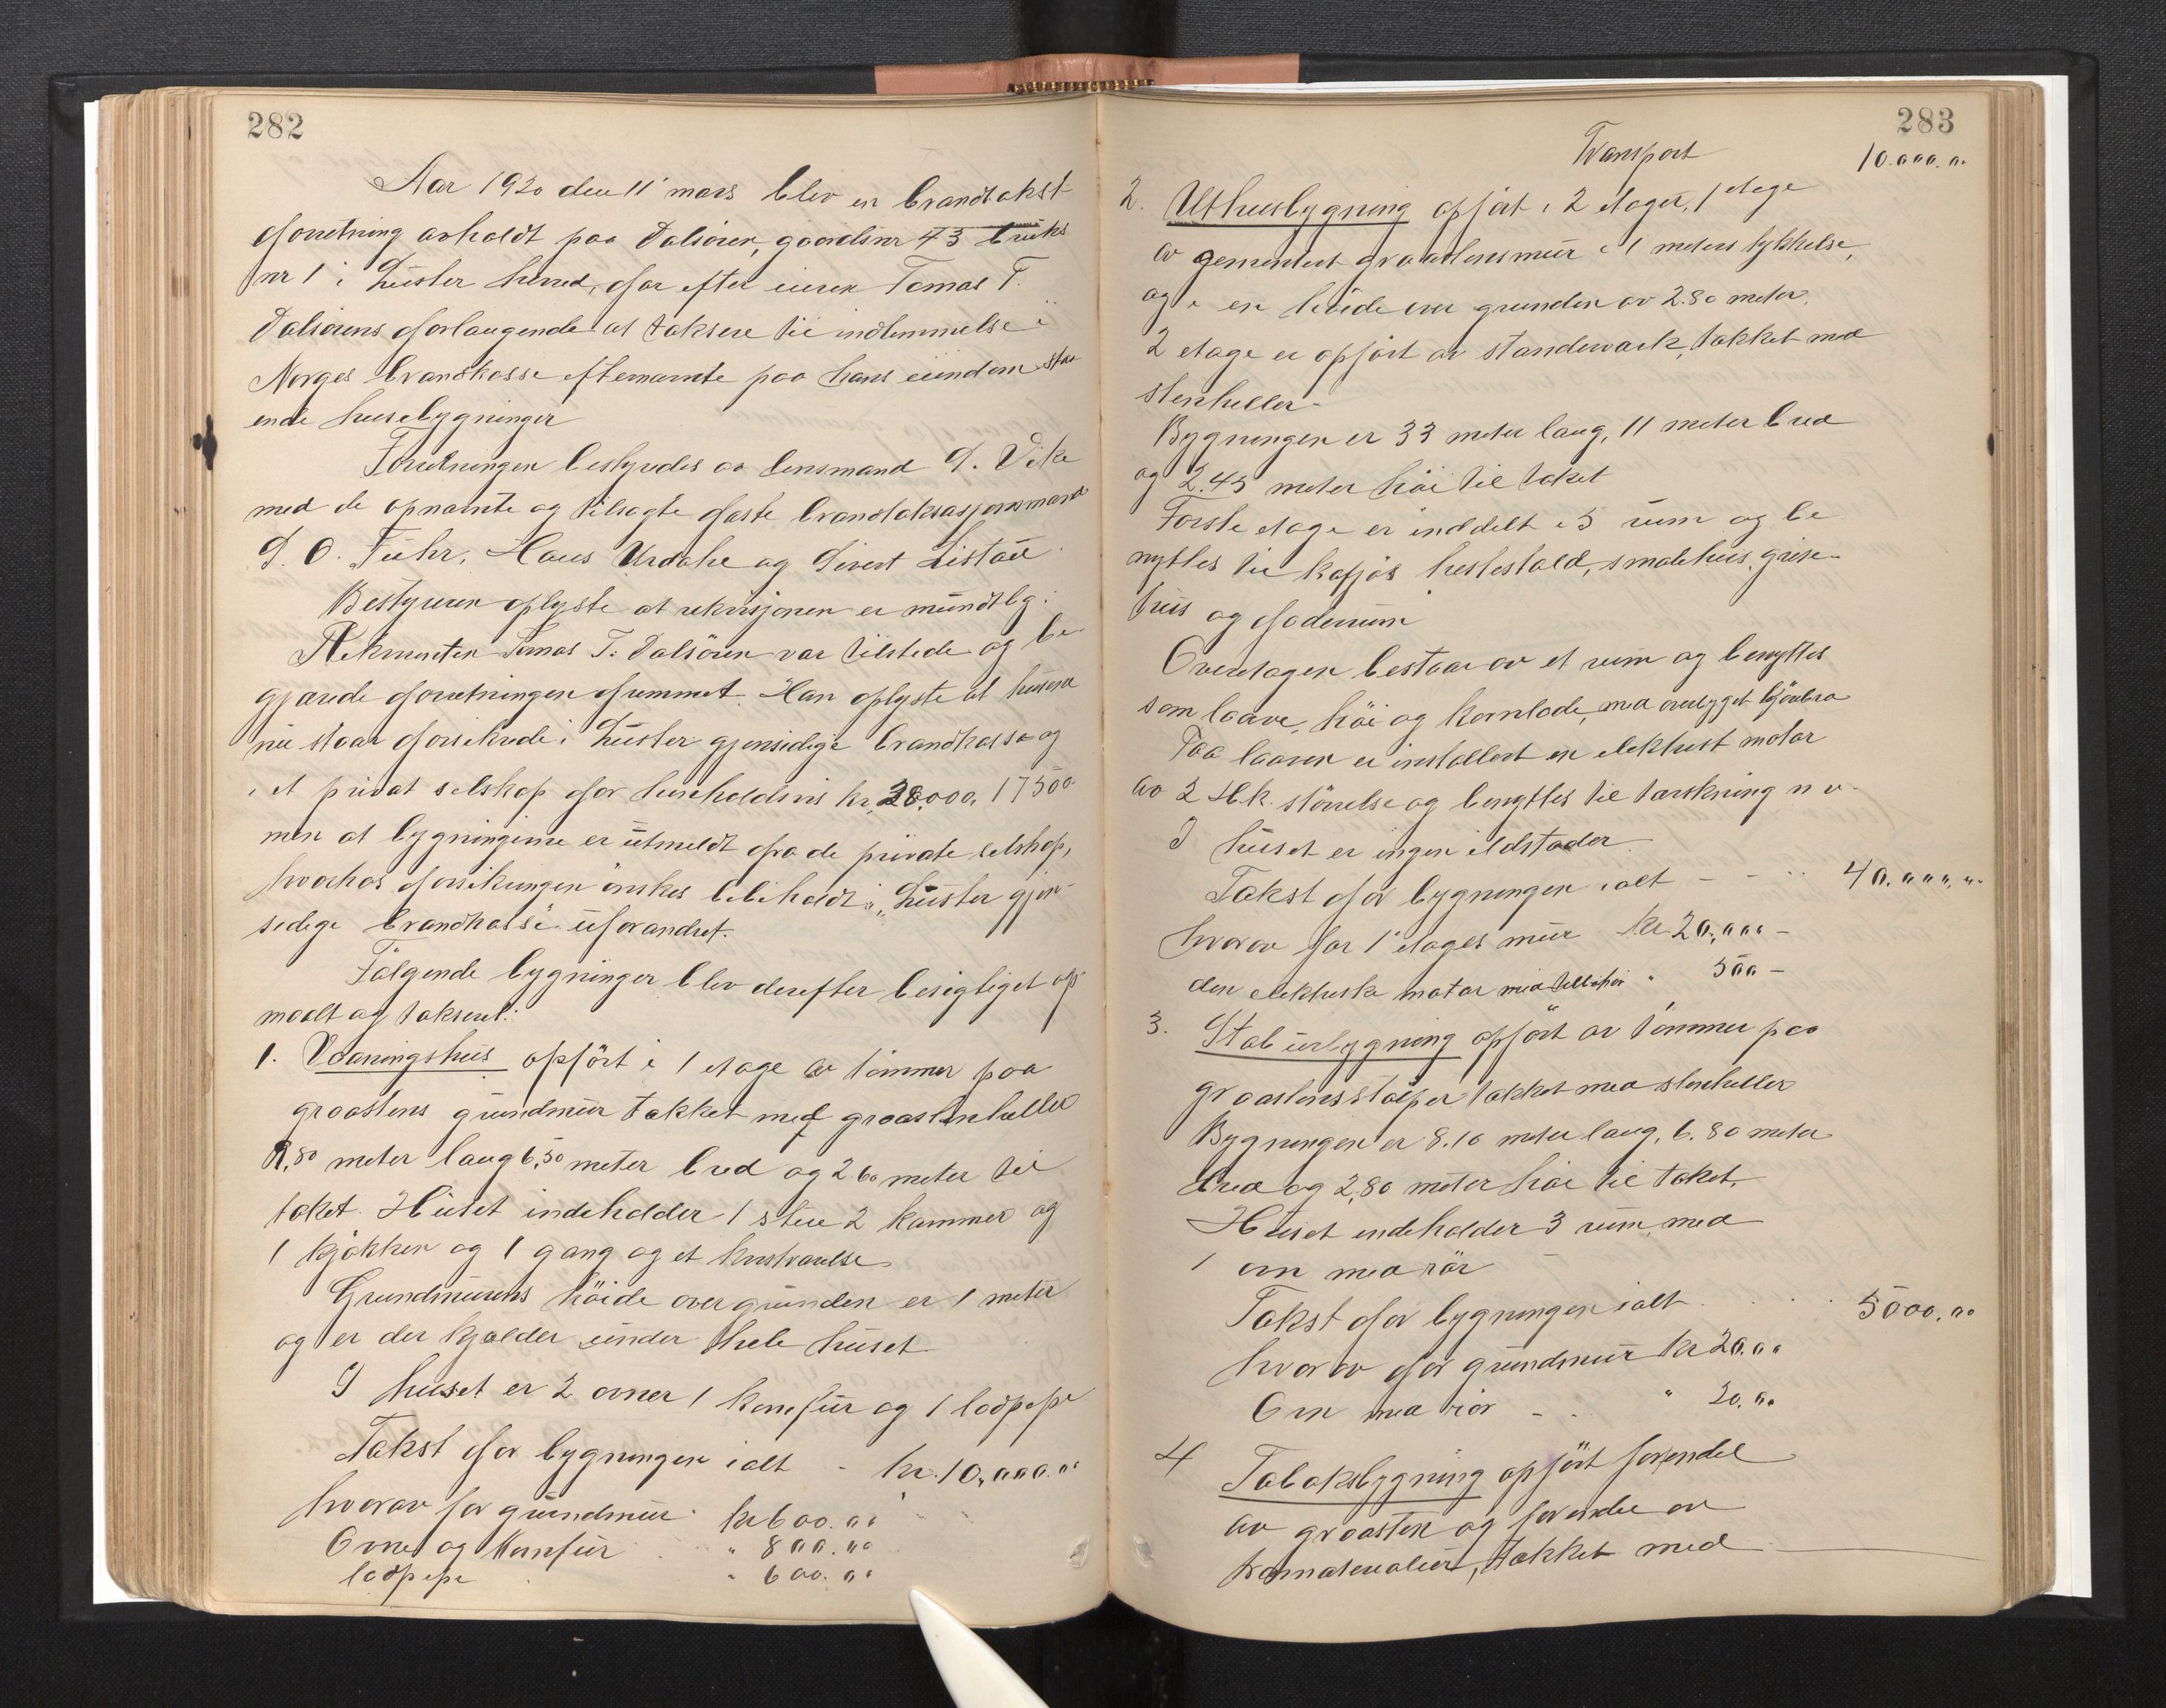 282
Aar 1920 den 11' mars blev en brandtakst
forretning avholdt paa Dalsøren, gaardsnr 73 bruks
nr 1 i Luster herred, for efter eieren Tomas T.
Dalsørens forlangende at taksere til indlemmelse i
Norges brandkasse efternævnte paa hans eiendom staa
ende husebygninger
Forretningen bestyredes av lensmand S. Vike
med de opnævnte og tilsagte faste brandtaksasjonsmænd
S. O. Fuhr, Hans Urdahl og Sivert Listøu
Bestyreren oplyste at rekvisjonen er mundtlig.
Rekvirenten Tomas T. Dalsøren var tilstede og be
gjærede forretningen fremmet. Han oplyste at husene
nu staar forsikrede i Luster gjensidige brandkasse og
i et privat selskap for henholdsvis kr. 28,000, 17500
men at bygningerne er utmeldt fra de private selskap,
hvorhos forsikringen ønskes bibeholdt i "Luster gjen-
sidige brandkasse" uforandret.
Følgende bygninger blev derefter besigtiget op
maalt og taksert:
1. Vaaningshus opført i 1 etage av tømmer paa
graastens grundmur takket med graastenheller
9,80 meter lang 6,50 meter bred og 2 60 meter til
taket. Huset indeholder 1 stue 2 kammer og
1 kjøkken og 1 gang og et kvistværelse
Grundmurens høide over grunden er 1 meter
og er der kjælder under hele huset
I huset er 2 ovner 1 komfur og 1 lodpipe
Takst for bygningen ialt - kr. 10,000.00
hvorav for grundmur kr 600.00
Ovne og Komfur " 800.00
lodpipe " 600.00
283
Transport 10.000.00
2. Uthusbygning opført i 2 etager, 1 etage
av sementert graastensmur i 1 meters tykkelse,
og i en høide over grunden av 2.80 meter.
2 etage er opført av standerværk, takket med
stenheller-
Bygningen er 33 meter lang, 11 meter bred
og 2.45 meter høi til taket
Første etage er inddelt i 5 rum og be
nyttes til kofjøs hestestald, smalehus, grise-
hus og foderrum
Overetagen bestaar av et rum og benyttes
som laave, høi og kornlade, med overbygget kjørebro
Paa laaven er installert en elektrisk motor
av 2 H.k. størrelse og benyttes til tærskning m v.
I huset er ingen ildstæder.
Takst for bygningen ialt - - .. 40.000.00
hvorav for 1' etages mur kr. 20,000 -
den elektriske motor med tilbehør " 500 -
3. Staburbygning opført av tømmer paa
graastensstolper takket med stenheller
Bygningen er 8.10 meter lang, 6.80 meter
bred og 2,80 meter høi til taket.
Huset indeholder 3 rum, med
1 ovn med rør
Takst for bygningen ialt . . . 5000.00
hvorav for grundmur kr 20.00
Ovn med rør - . . " 20.00
4 Tabaksbygning opført for endel
av graasten og for endel av
træmaterialier, takket med